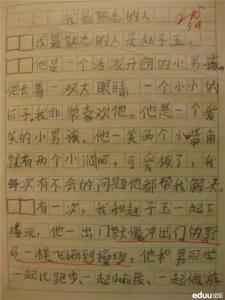 我最熟悉的人
我最熟悉的人是赵子玉。
他是一个活泼开朗的小男孩,
他长着一双大眼睛,一个小小的
鼻子我非常喜欢他。他是一个爱
笑的小男孩。他一笑两个小嘴角
就有两个小酒窝,可爱极了,我
每次有不会的问题他都帮我解决。
有一次,我和赵子玉一起下
楼玩,他一出门就像冲出门的野
马一样飞跑到操场,他和男同学
一起比跑步、一起 一起做游
eduu论坛